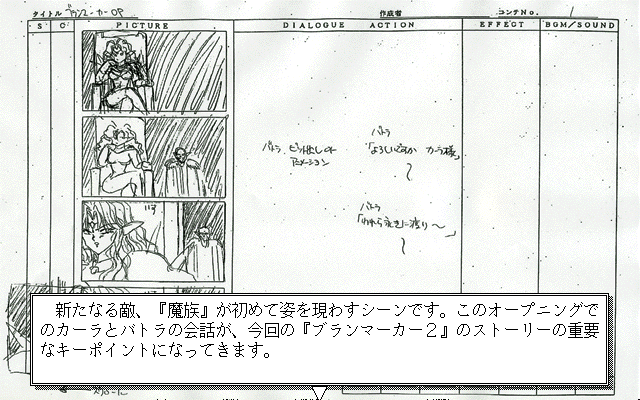 タイトル ブランマーカーOP 作成者 コンテNo. 1
S C PICTURE DIALOGUE ACTION EFFECT BGM/SOUND
バトラ
バトラ、ピント出しの 「よろしいですか カーラ様」
アニメーション
バトラ
「われら永きに渡り〜」
新たなる敵、『魔族』が初めて姿を現わすシーンです。このオープニングで
のカーラとバトラの会話が、今回の『ブランマーカー２』のストーリーの重要
なキーポイントになってきます。